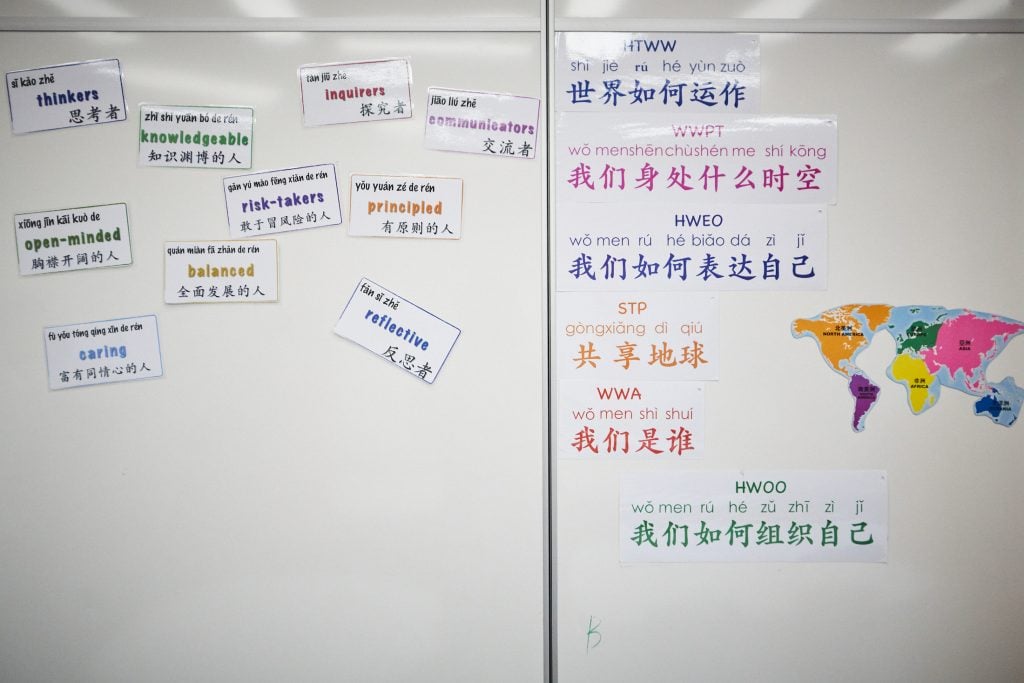 sī kǎo zhě
thinkers
思考者
zhī shi yuān bó de rén
knowledgeable
知识渊博的人
tàn jiū zhě
inquirers
探究者
jiāo liú zhě
communicators
交流者
gǎn yú mào fēng xiǎn de rén
risk-takers
敢于冒风险的人
yǒu yuán zé de rén
principled
有原则的人
xiōng jīn kāi kuò de
open-minded
胸襟开阔的人
quán miàn fā zhǎn de rén
balanced
全面发展的人
fù yǒu tóng qíng xīn de rén
caring
富有同情心的人
fǎn sī zhě
reflective
反思者
HTWW
shì jiè rú hé yùn zuò
世界如何运作
WWPT
wǒ menshēnchùshén me shí kōng
我们身处什么时空
HWEO
wǒ men rú hé biǎo dá zì jǐ
我们如何表达自己
STP
gòngxiǎng dì qiú
共享地球
WWA
wǒ men shì shuí
我们是谁
HWOO
wǒ men rú hé zǔ zhī zì jǐ
我们如何组织自己
北美洲
NORTH AMERICA
亞洲
ASIA
AFRICA